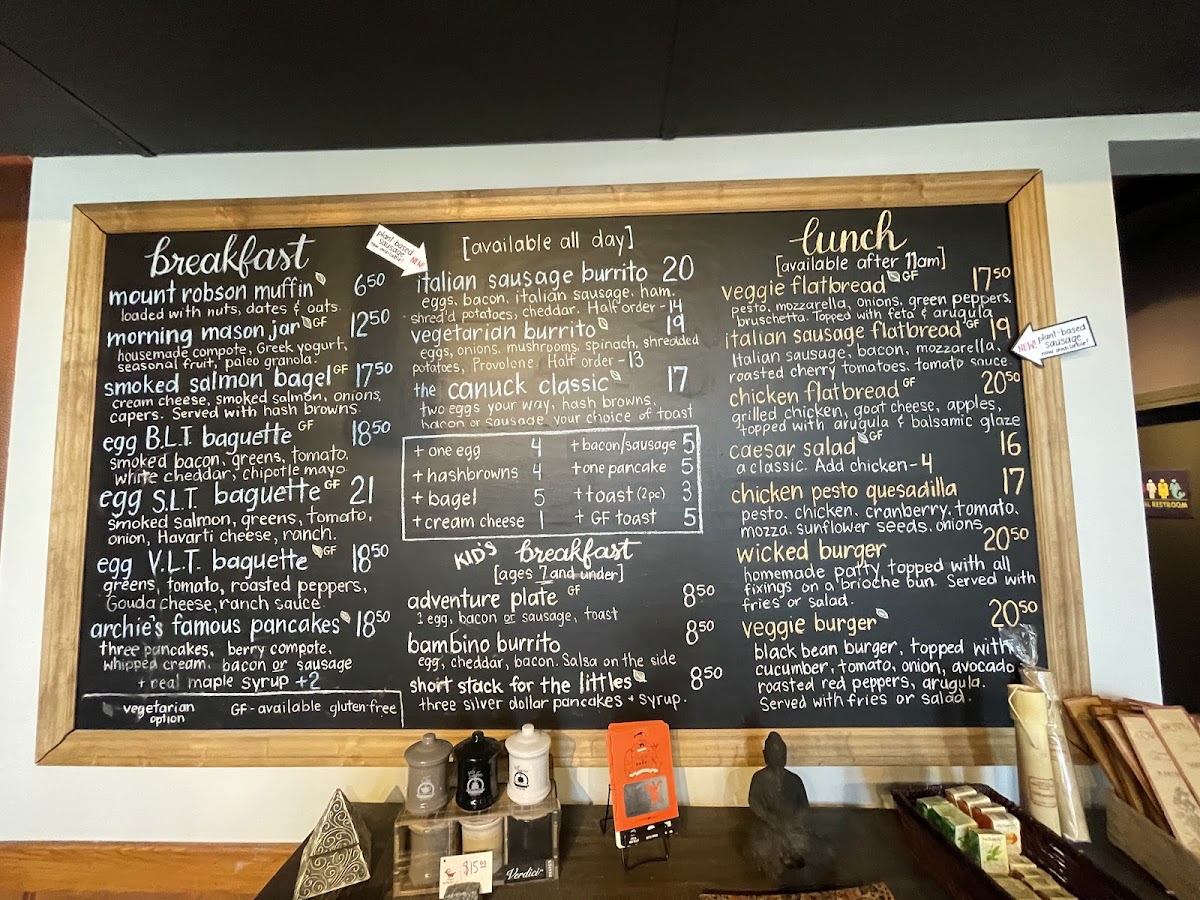 breakfast
mount robson muffin 6.50
loaded with nuts, dates & oats.
morning mason jar GF 12.50
housemade compote, Greek yogurt,
seasonal fruit, paleo granola.
smoked salmon bagel GF 17.50
cream cheese, smoked salmon, onions,
capers. Served with hash browns.
egg B.L.T. baguette GF 18.50
smoked bacon, greens, tomato,
white cheddar, chipotle mayo.
egg S.L.T. baguette GF 21
smoked salmon, greens, tomato,
onion, Havarti cheese, ranch.
egg V.L.T. baguette GF 18.50
greens, tomato, roasted peppers,
Gouda cheese, ranch sauce.
archie's famous pancakes 18.50
three pancakes, berry compote,
whipped cream, bacon or sausage
+ real maple syrup +2
vegetarian
option
GF - available gluten-free
plant-based
sausage
now available!
NEW!
[available all day]
italian sausage burrito 20
eggs, bacon, italian sausage, ham,
shred'd potatoes, cheddar. Half order - 14
vegetarian burrito 19
eggs, onions, mushrooms, spinach, shredded
potatoes, Provolone. Half order - 13
the canuck classic 17
two eggs your way, hash browns,
bacon or sausage, your choice of toast
+ one egg 4
+ hashbrowns 4
+ bagel 5
+ cream cheese 1
+ bacon/sausage 5
+ one pancake 5
+ toast (2pc) 3
+ GF toast 5
KID'S breakfast
[ages 7 and under]
adventure plate GF 8.50
1 egg, bacon or sausage, toast
bambino burrito 8.50
egg, cheddar, bacon. Salsa on the side
short stack for the littles 8.50
three silver dollar pancakes + syrup.
lunch
[available after 11am]
veggie flatbread GF 17.50
pesto, mozzarella, onions, green peppers,
bruschetta. Topped with feta & arugula
italian sausage flatbread GF 19
Italian sausage, bacon, mozzarella,
roasted cherry tomatoes, tomato sauce
NEW! plant-based
sausage
now available!
chicken flatbread GF 20.50
grilled chicken, goat cheese, apples,
topped with arugula & balsamic glaze
caesar salad GF 16
a classic. Add chicken - 4
chicken pesto quesadilla 17
pesto, chicken, cranberry, tomato,
mozza, sunflower seeds, onions.
wicked burger 20.50
homemade patty topped with all
fixings on a brioche bun. Served with
fries or salad.
veggie burger 20.50
black bean burger, topped with
cucumber, tomato, onion, avocado
roasted red peppers, arugula.
Served with fries or salad.
RESTROOM
$15.00
Verdici